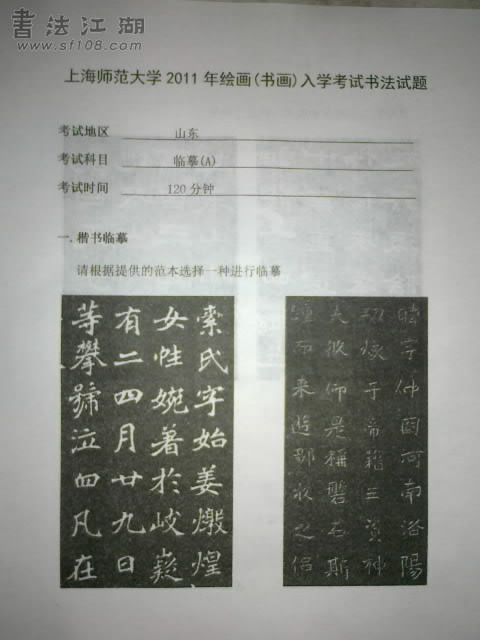 書法江湖
www.sf108.com
上海师范大学 2011 年绘画(书画)入学考试书法试题
考试地区 山东
考试科目 临摹(A)
考试时间 120 分钟
一.楷书临摹
请根据提供的范本选择一种进行临摹
索氏字始姜燉煌
女性婉著於岐嶷
有二四月廿九日
等攀號泣四凡在
晧字仲固河南洛陽
于帝籍三資神
夫攸仰是稱磐石斯
而來遊鄴水之侶